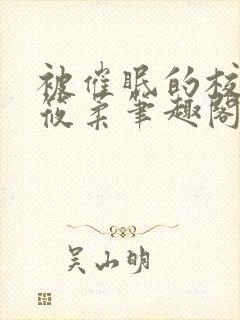 被催眠的校
筱柔笔趣阁
吴山明